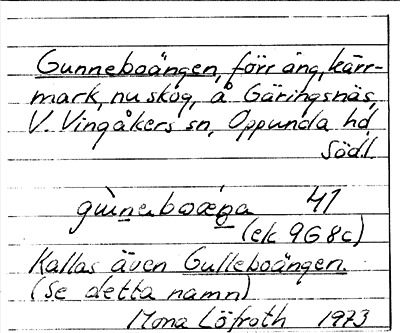 Gunneboängen, förr äng, kärr-
mark, nu skog, å Gäringsnäs,
V. Vingåkers sn, Oppunda hd,
Södl.
gùneboæŋa 41
(ek 9G8c)
Kallas även Gulleboängen.
(Se detta namn)
Mona Löfroth 1973